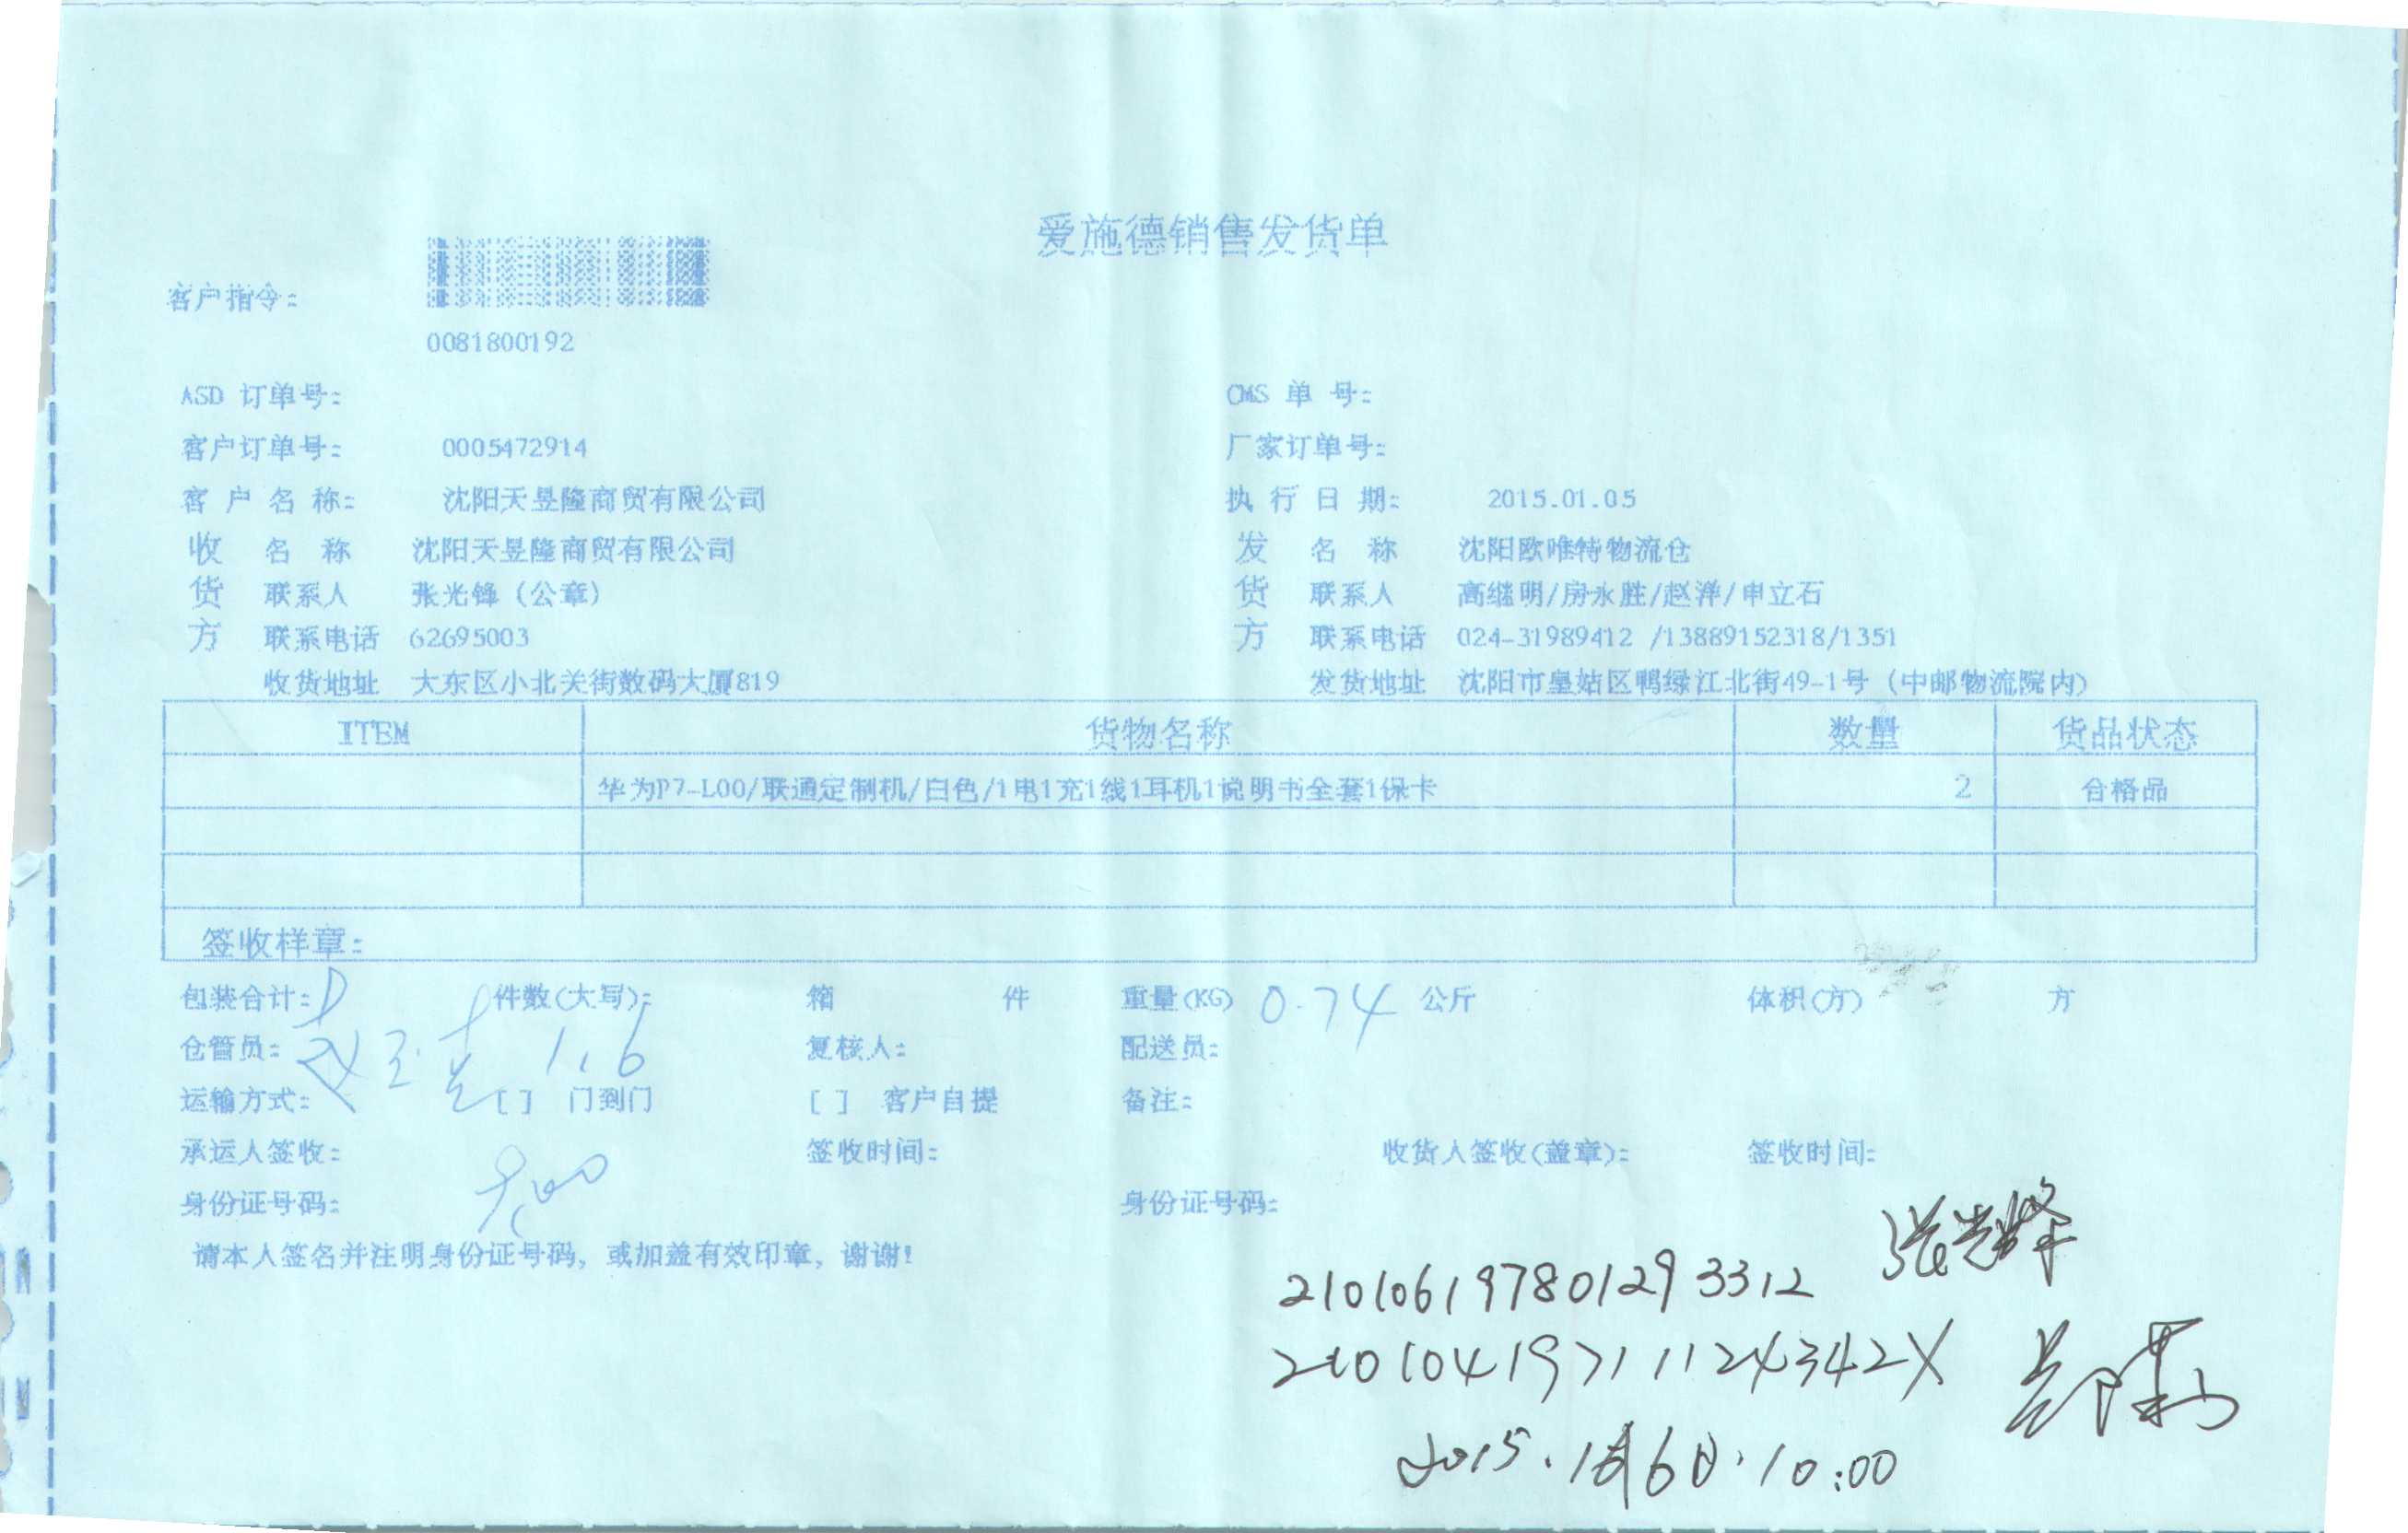 爱施德销售发货单
客户指令:
0081800192
ASD 订单号: CMS 单 号:
客户订单号: 0005472914 厂家订单号:
客 户 名 称: 沈阳天昱隆商贸有限公司 执 行 日 期: 2015.01.05
收 名 称 沈阳天昱隆商贸有限公司 发 名 称 沈阳欧唯特物流仓
货 联系人 张光锋（公章） 货 联系人 高继明/房永胜/赵洋/申立石
方 联系电话 62695003 方 联系电话 024-31989412 /13889152318/1351
收货地址 大东区小北关街数码大厦819 发货地址 沈阳市皇姑区鸭绿江北街49-1号（中邮物流院内）
ITEM 货物名称 数量 货品状态
华为P7-L00/联通定制机/白色/1电1充1线1耳机1说明书全套1保卡 2 合格品
签收样章:
包装合计: 件数(大写): 箱 件 重量(KG) 0.74 公斤 体积(方) 方
仓管员: 1.6 复核人: 配送员:
运输方式: [ ] 门到门 [ ] 客户自提 备注:
承运人签收: 签收时间: 收货人签收(盖章): 签收时间:
身份证号码: 身份证号码:
请本人签名并注明身份证号码，或加盖有效印章，谢谢!
210106197801293312 张光锋
21010419711124342X
2015.1月6日.10:00